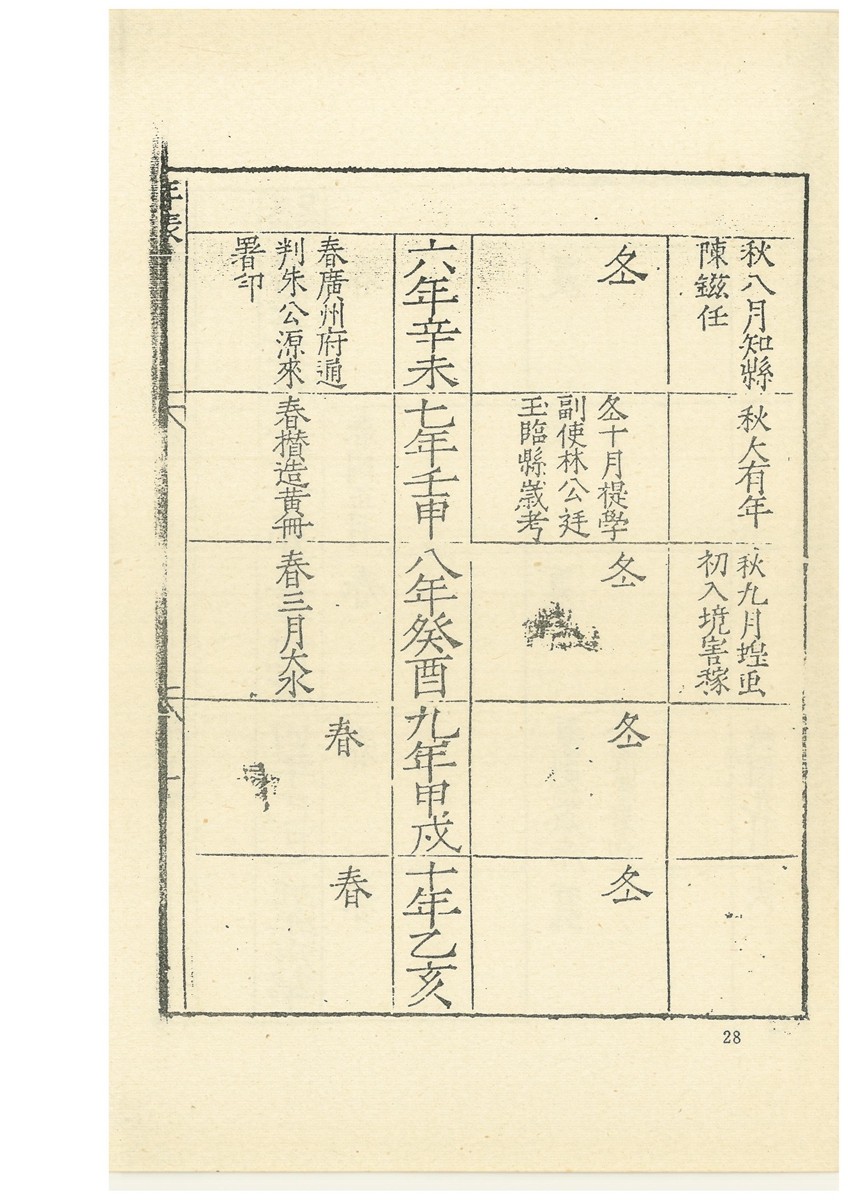 秋八月知縣
陳鎡任
秋大有年
秋九月蝗虫
初入境害稼
冬
冬十月提學
副使林公廷
玉臨縣歲考
冬
冬
冬
六年辛未
七年壬申
八年癸酉
九年甲戍
十年乙亥
春廣州府通
判朱公源來
署印
春攢造黃冊
春三月大水
春
春
年表
28